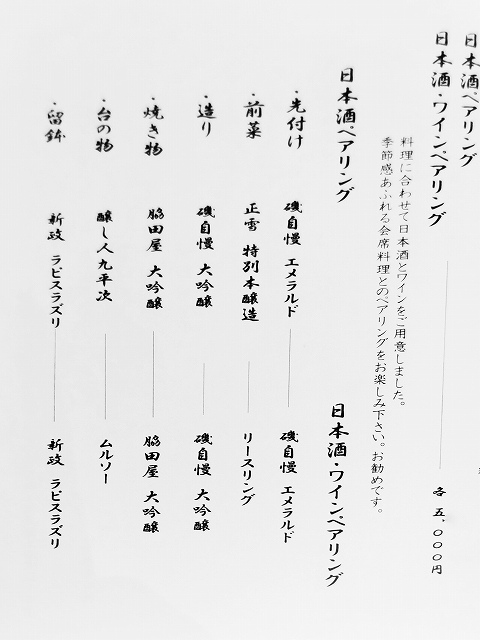 日本酒ペアリング
日本酒・ワインペアリング 各 五、〇〇〇円
料理に合わせて日本酒とワインをご用意しました。
季節感あふれる会席料理とのペアリングをお楽しみ下さい。お勧めです。
日本酒ペアリング 日本酒・ワインペアリング
・先付け 磯自慢 エメラルド 磯自慢 エメラルド
・前菜 正雪 特別本醸造 リースリング
・造り 磯自慢 大吟醸 磯自慢 大吟醸
・焼き物 脇田屋 大吟醸 脇田屋 大吟醸
・台の物 醸し人九平次 ムルソー
・留鉢 新政 ラピスラズリ 新政 ラピスラズリ